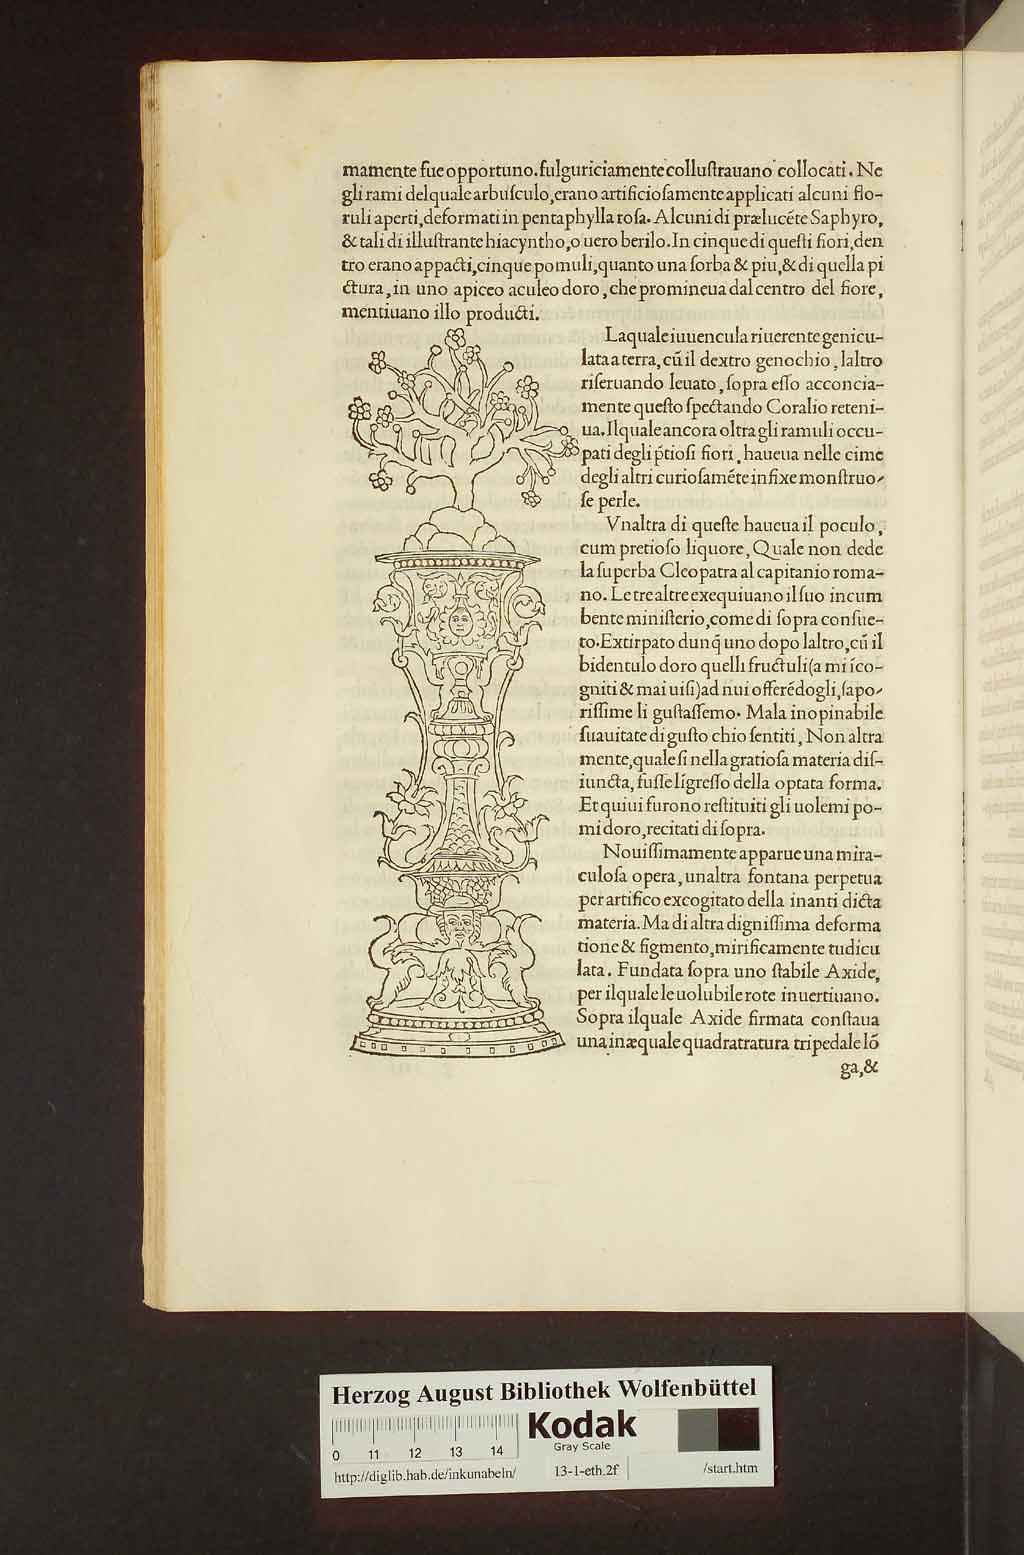 mamente fue opportuno.fulguriciamente colluſtrauano collocati. Ne
gli rami del quale arbuſculo,erano artificioſamente applicati alcuni flo-
ruli aperti,deformati in pentaphylla roſa. Alcuni di prælucéte Saphyro,
& tali di illuſtrante hiacyntho,o uero berilo. In cinque di queſti fiori,den
tro erano appacti,cinque pomuli,quanto una ſorba & piu,& di quella pi
ctura, in uno apiceo aculeo doro, che promineua dal centro del fiore,
mentiuano illo producti.
Laquale iuuencula riuerente genicu-
lata a terra, cũ il dextro genochio, laltro
riſeruando leuato, ſopra eſſo acconcia-
mente queſto ſpectando Coralio reteni-
ua. Ilquale ancora oltra gli ramuli occu-
pati degli p̃tioſi fiori, haueua nelle cime
degli altri curioſaméte infixe monſtruo-
ſe perle.
Vnaltra di queſte haueua il poculo,
cum pretioſo liquore, Quale non dede
la ſuperba Cleopatra al capitanio roma-
no. Le tre altre exequiuano il ſuo incum
bente miniſterio,come di ſopra conſue-
to. Extirpato dunq̃ uno dopo laltro,cũ il
bidentulo doro quelli fructuli(a mi ĩco-
gniti & mai uiſi)ad nui offerédogli,ſapo-
riſſime li guſtaſſemo. Mala inopinabile
ſuauitate di guſto chio ſentiti, Non altra
mente,quale ſi nella gratioſa materia diſ-
iuncta, fuſſe lĩgreſſo della optata forma.
Et quiui furono reſtituiti gli uolemi po-
mi doro,recitati di ſopra.
Nouiſſimamente apparue una mira-
culoſa opera, unaltra fontana perpetua
per artifico excogitato della inanti dicta
materia. Ma di altra digniſſima deforma
tione & figmento,mirificamente tudicu
lata. Fundata ſopra uno ſtabile Axide,
per ilquale le uolubile rote inuertiuano.
Sopra ilquale Axide firmata conſtaua
una inæquale quadratratura tripedale lõ
ga,&
Herzog August Bibliothek Wolfenbüttel
Kodak
Gray Scale
0 11 12 13 14
http://diglib.hab.de/inkunabeln/ 13-1-eth.2f /start.htm